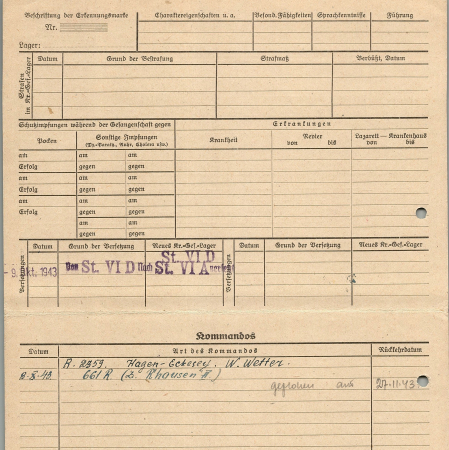 Beschriftung der Erkennungsmarke Charaktereigenschaften u. a. Besond. Fähigkeiten Sprachkenntnisse Führung
Nr.
Lager:
Strafen im Kr.-Gef.-Lager Datum Grund der Bestrafung Strafmaß Verbüßt, Datum
Schutzimpfungen während der Gefangenschaft gegen Erkrankungen
Pocken Sonstige Impfungen (Ty.-Paraty., Ruhr, Cholera usw.) Krankheit Revier von bis Lazarett — Krankenhaus von bis
am am am
Erfolg gegen gegen
am am am
Erfolg gegen gegen
am am am
Erfolg gegen gegen
am am
gegen gegen
Versetzungen Datum Grund der Versetzung Neues Kr.-Gef.-Lager Versetzungen Datum Grund der Versetzung Neues Kr.-Gef.-Lager
St. VI D
- 9. Okt. 1943 Von St. VI D Nach St. VI A
Kommandos
Datum Art des Kommandos Rückkehrdatum
R. 2359. Hagen-Eckesey. W. Wetter.
9.X.43. 661 R
geflohen am 27.11.43